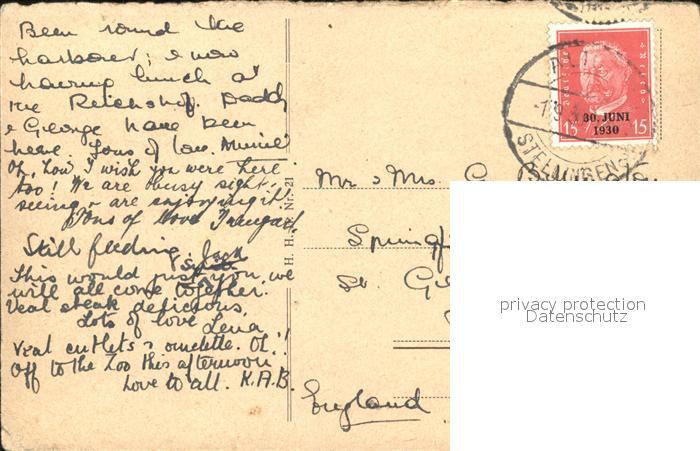 Been round the
harbour; & now
having lunch at
the Reichshof. Daddy
& George have been
here. Tons of love. Muriel
Oh, how I wish you were here
too! We are busy sight-
seeing & are enjoying it!
Tons of love
Still feeding, Jack
This would just you, we
will all come together.
Veal steak delicious,
Lots of love Lena
Veal cutlets & omelette. Oh!!
Off to the Zoo this afternoon
Love to all. K.A.B.
H. H. Nr. 21
Deutsches Reich
30. JUNI
1930
15 15
STELLINGEN
Mr & Mrs G.
Springf
St. G
England
privacy protection
Datenschutz